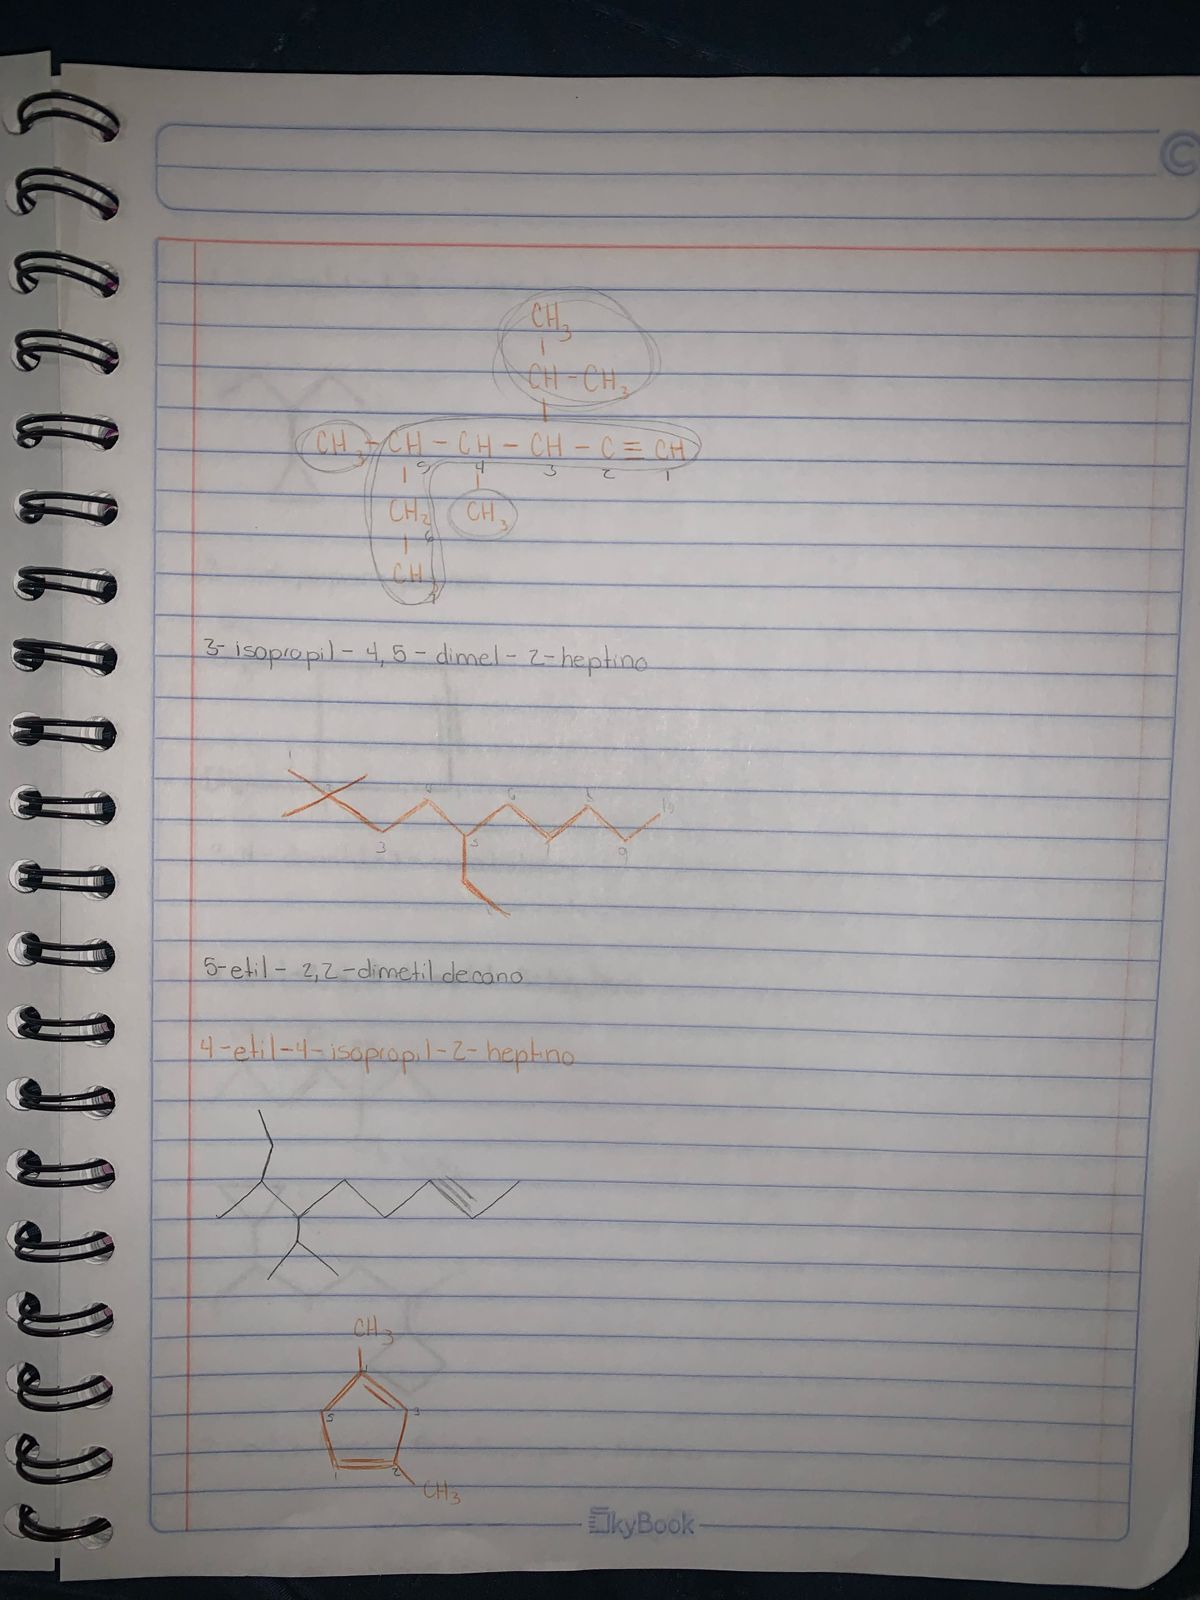 CH3
CH-CH3
CH3-CH-CH-CH-C≡CH
5 4 3 2 1
CH2 CH3
6
CH
7
3-isopropil-4,5-dimel-2-heptino
1
2 4 6 8 10
3 5 7 9
5-etil-2,2-dimetil decano
4-etil-4-isopropil-2-heptino
CH3
4
5 3
1 2
CH3
SkyBook